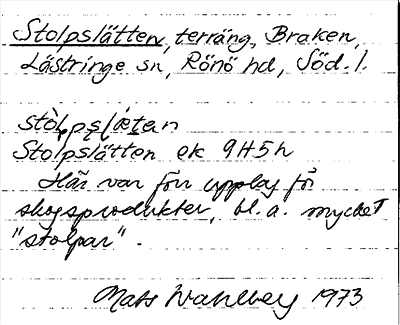 Stolpslätten, terräng, Braken,
Lästringe sn, Rönö hd, Söd. l.
stòl̥ps̥l̥ætan
Stolpslätten ek 9H5h
Här var förr upplag för
skogsprodukter, bl.a. mycket
"stolpar".
Mats Wahlberg 1973